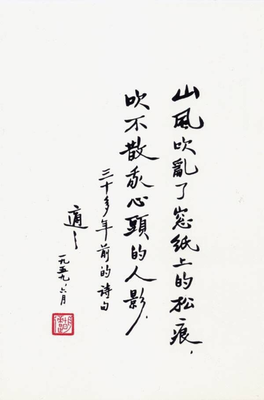 山風吹亂了窓紙上的松痕，
吹不散我心頭的人影。
三十多年前的詩句
適之
一九五九、六月